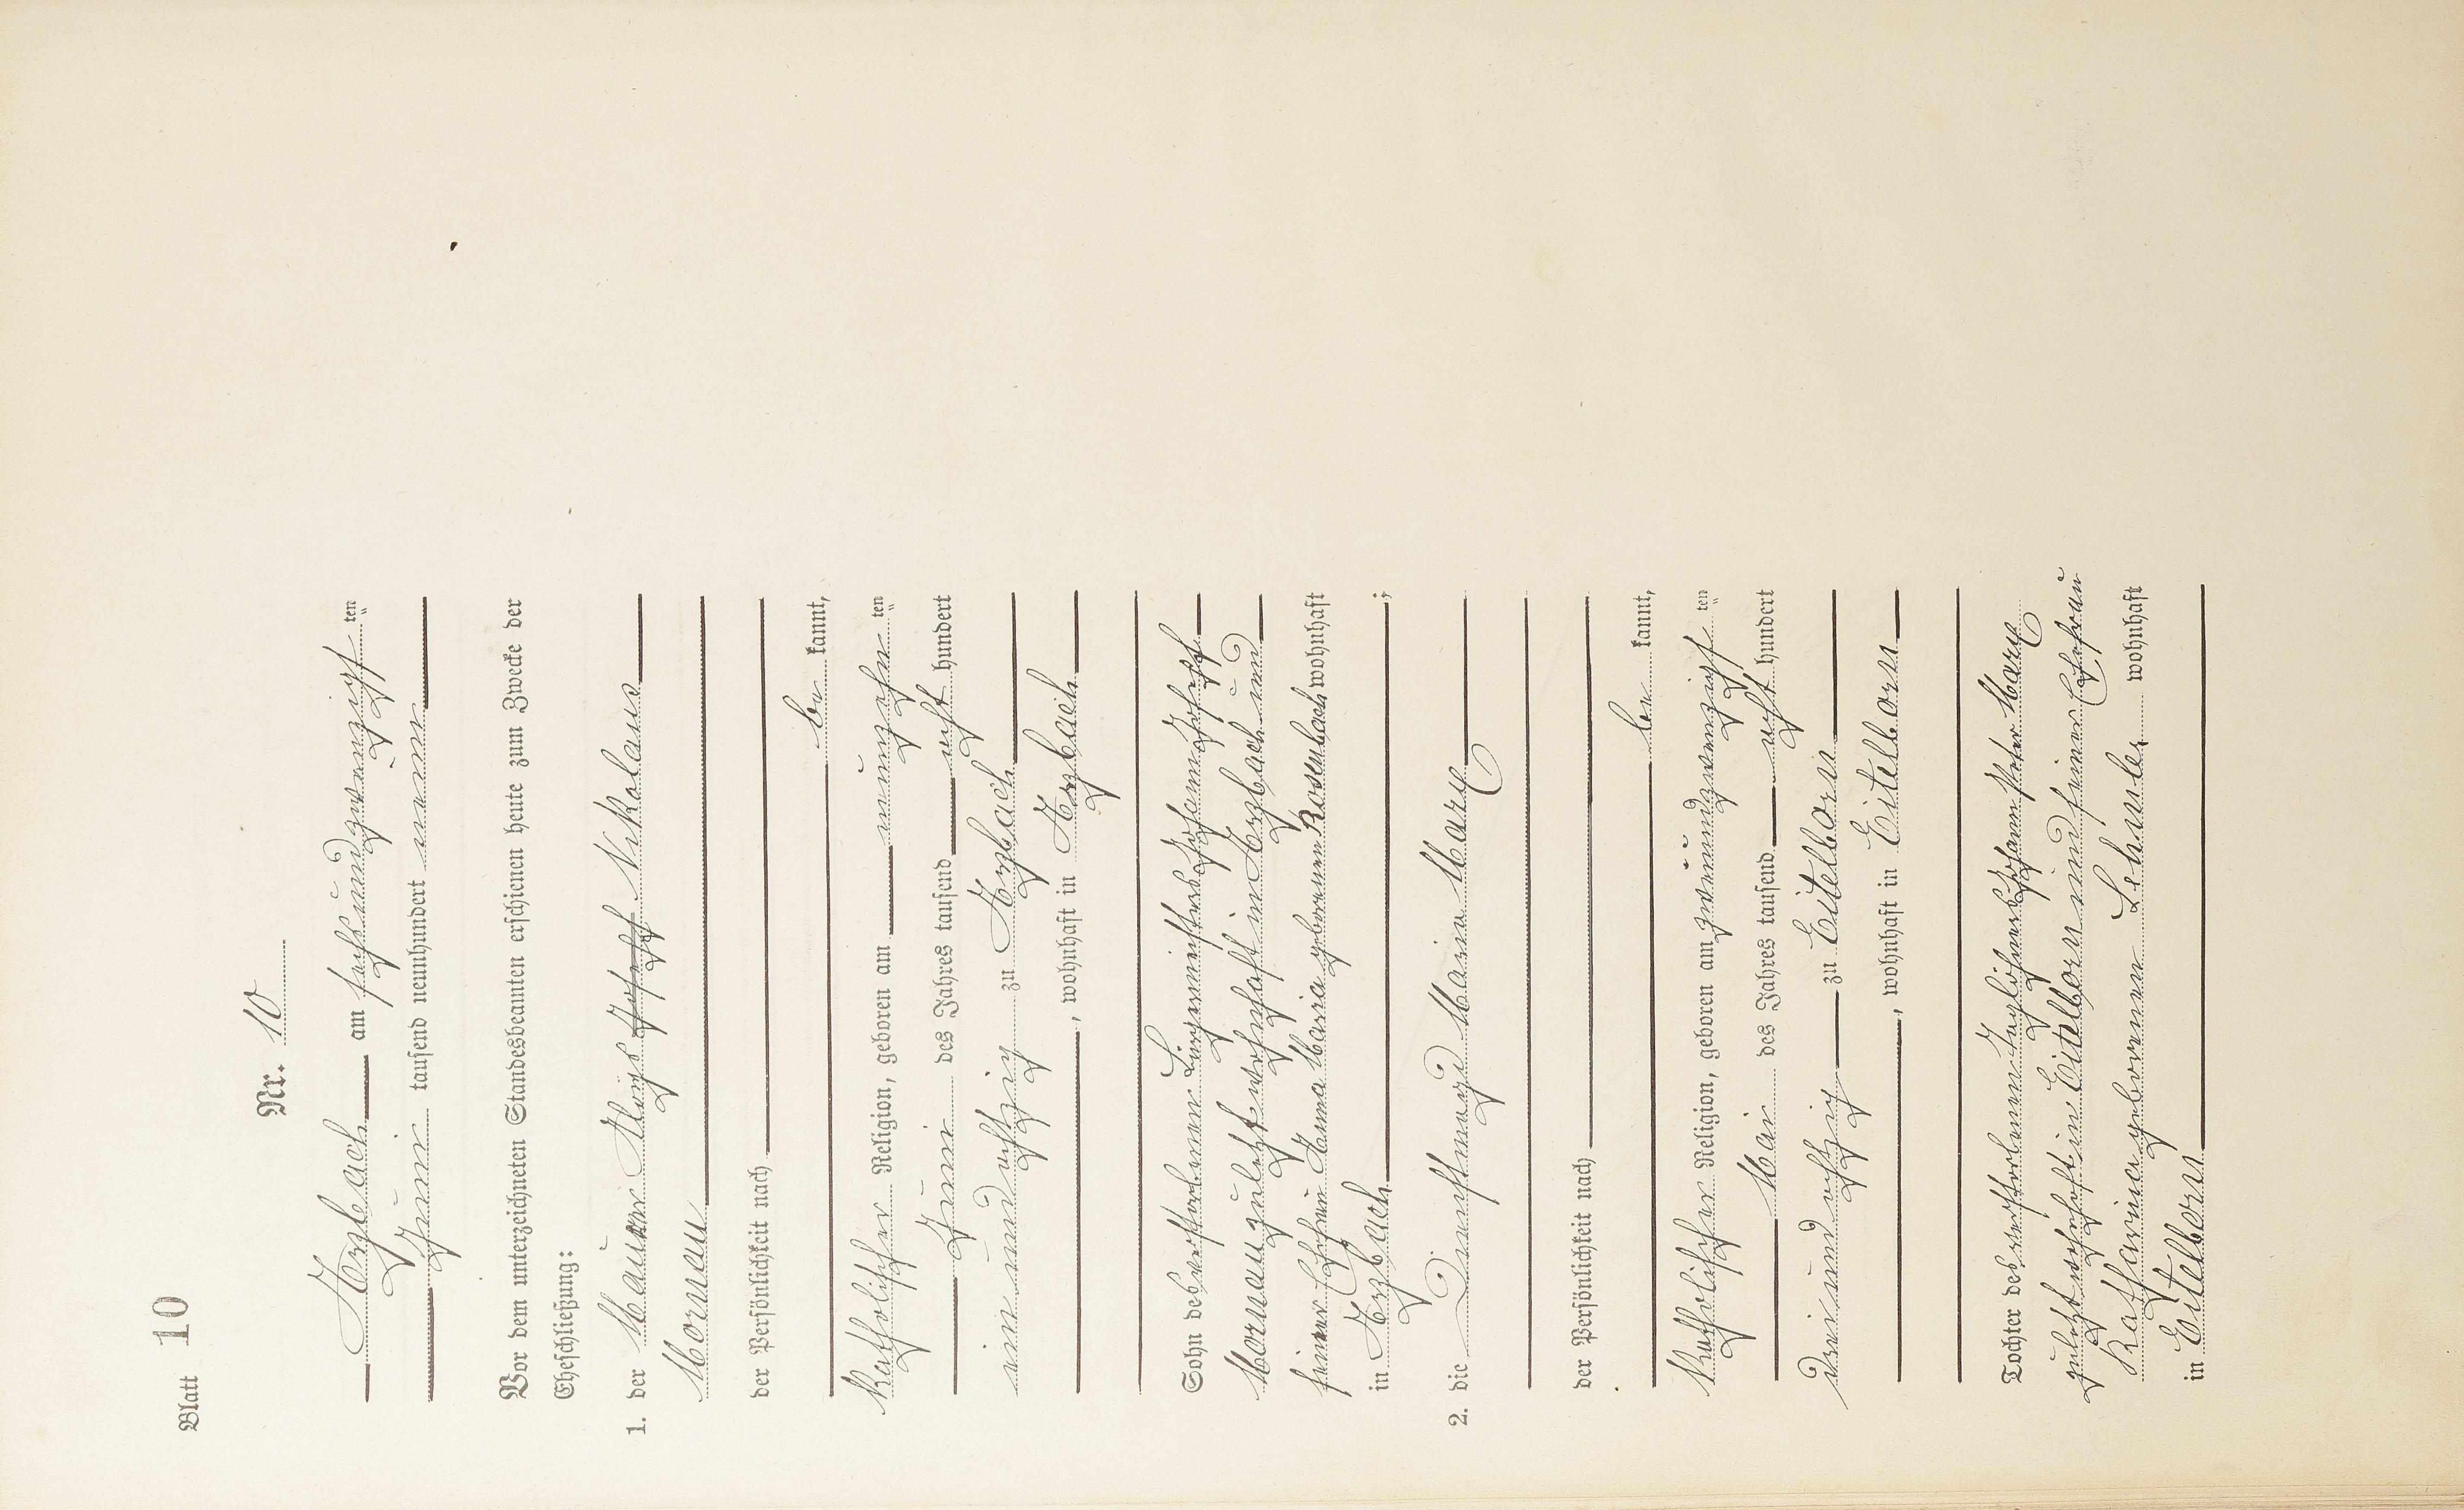 Blatt 10
Nr. 10
Arzbach am sechsundzwanzigsten
Juni tausend neunhundert neun
Vor dem unterzeichneten Standesbeamten erschienen heute zum Zwecke der
Eheschließung:
1. der Maurer Aloys Josef Nikolaus
Mornau
der Persönlichkeit nach
be kannt,
katholischer Religion, geboren am neunzehnten
Juni des Jahres tausend acht hundert
ein und achtzig zu Arzbach
, wohnhaft in Arzbach
Sohn des verstorbenen Bürgermeisters Johann Josef
Mornau zuletzt wohnhaft in Arzbach und
seiner Ehefrau Anna Maria geborenen Rosenbach wohnhaft
in Arzbach ;
2. die Dienstmagd Maria Marx
der Persönlichkeit nach
be kannt,
katholischer Religion, geboren am zweiundzwanzigsten
Mai des Jahres tausend acht hundert
drei und achtzig zu Eitelborn
, wohnhaft in Eitelborn
Tochter des verstorbenen Taglöhners Johann Peter Marx
zuletzt wohnhaft in Eitelborn und seiner Ehefrau
Katharina geborenen Schuler wohnhaft
in Eitelborn